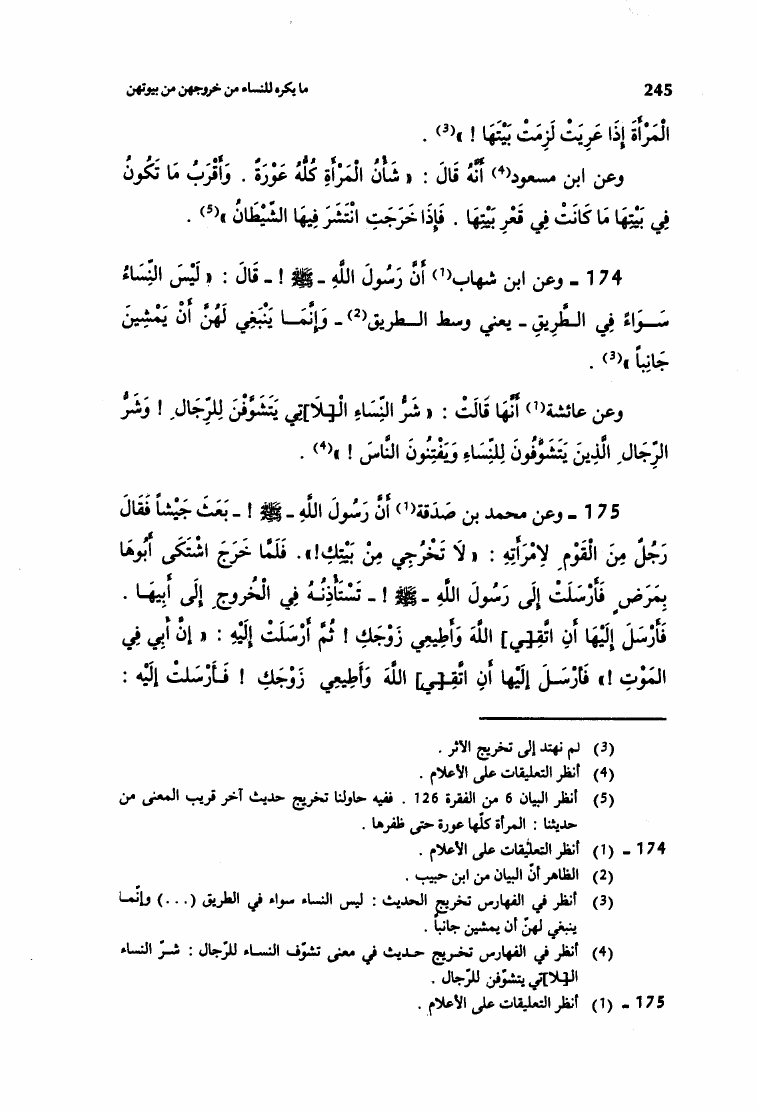 245 ما يكره للنساء من خروجهن من بيوتهن
الْمَرْأَةَ إِذَا عَرِيَتْ لَزِمَتْ بَيْتَهَا ! »(3) .
وعن ابن مسعود(4) أَنَّهُ قَالَ : « شَأْنُ الْمَرْأَةِ كُلُّهُ عَوْرَةٌ . وَأَقْرَبُ مَا تَكُونُ
فِي بَيْتِهَا مَا كَانَتْ فِي قَعْرِ بَيْتِهَا . فَإِذَا خَرَجَتِ انْتَشَرَ فِيهَا الشَّيْطَانُ »(5) .
174 ـ وعن ابن شهاب(1) أَنَّ رَسُولَ اللَّهِ ـ ﷺ ! ـ قَالَ : « لَيْسَ النِّسَاءُ
سَوَاءً فِي الطَّرِيقِ ـ يعني وسط الطريق(2) ـ وَإِنَّمَا يَنْبَغِي لَهُنَّ أَنْ يَمْشِينَ
جَانِباً »(3) .
وعن عائشة(1) أَنَّهَا قَالَتْ : « شَرُّ النِّسَاءِ ال[لَا]تِي يَتَشَوَّفْنَ لِلرِّجَالِ ! وَشَرُّ
الرِّجَالِ الَّذِينَ يَتَشَوَّفُونَ لِلنِّسَاءِ وَيَفْتِنُونَ النَّاسَ ! »(4) .
175 ـ وعن محمد بن صَدَقة(1) أَنَّ رَسُولَ اللَّهِ ـ ﷺ ! ـ بَعَثَ جَيْشاً فَقَالَ
رَجُلٌ مِنَ الْقَوْمِ لِامْرَأَتِهِ : « لَا تَخْرُجِي مِنْ بَيْتِكِ!». فَلَمَّا خَرَجَ اشْتَكَى أَبُوهَا
بِمَرَضٍ فَأَرْسَلَتْ إِلَى رَسُولِ اللَّهِ ـ ﷺ ! ـ تَسْتَأْذِنُهُ فِي الْخُرُوجِ إِلَى أَبِيهَا .
فَأَرْسَلَ إِلَيْهَا أَنِ اتَّقِ[ي] اللَّهَ وَأَطِيعِي زَوْجَكِ ! ثُمَّ أَرْسَلَتْ إِلَيْهِ : « إِنَّ أَبِي فِي
الْمَوْتِ !» فَأَرْسَلَ إِلَيْها أَنِ اتَّقِ[ي] اللَّهَ وَأَطِيعِي زَوْجَكِ ! فَأَرْسَلَتْ إِلَيْه :
(3) لم نهتد إلى تخريج الأثر .
(4) أنظر التعليقات على الأعلام .
(5) أنظر البيان 6 من الفقرة 126 . ففيه حاولنا تخريج حديث آخر قريب المعنى من
حديثنا : المرأة كلّها عورة حتى ظفرها .
174 ـ (1) أنظر التعليقات على الأعلام .
(2) الظاهر أنّ البيان من ابن حبيب .
(3) أنظر في الفهارس تخريج الحديث : ليس النساء سواء في الطريق (...) وإنّما
ينبغي لهنّ أن يمشين جانباً .
(4) أنظر في الفهارس تخريج حديث في معنى تشوّف النساء للرّجال : شرّ النساء
ال[لا]تي يتشوّفن للرّجال .
175 ـ (1) أنظر التعليقات على الأعلام .